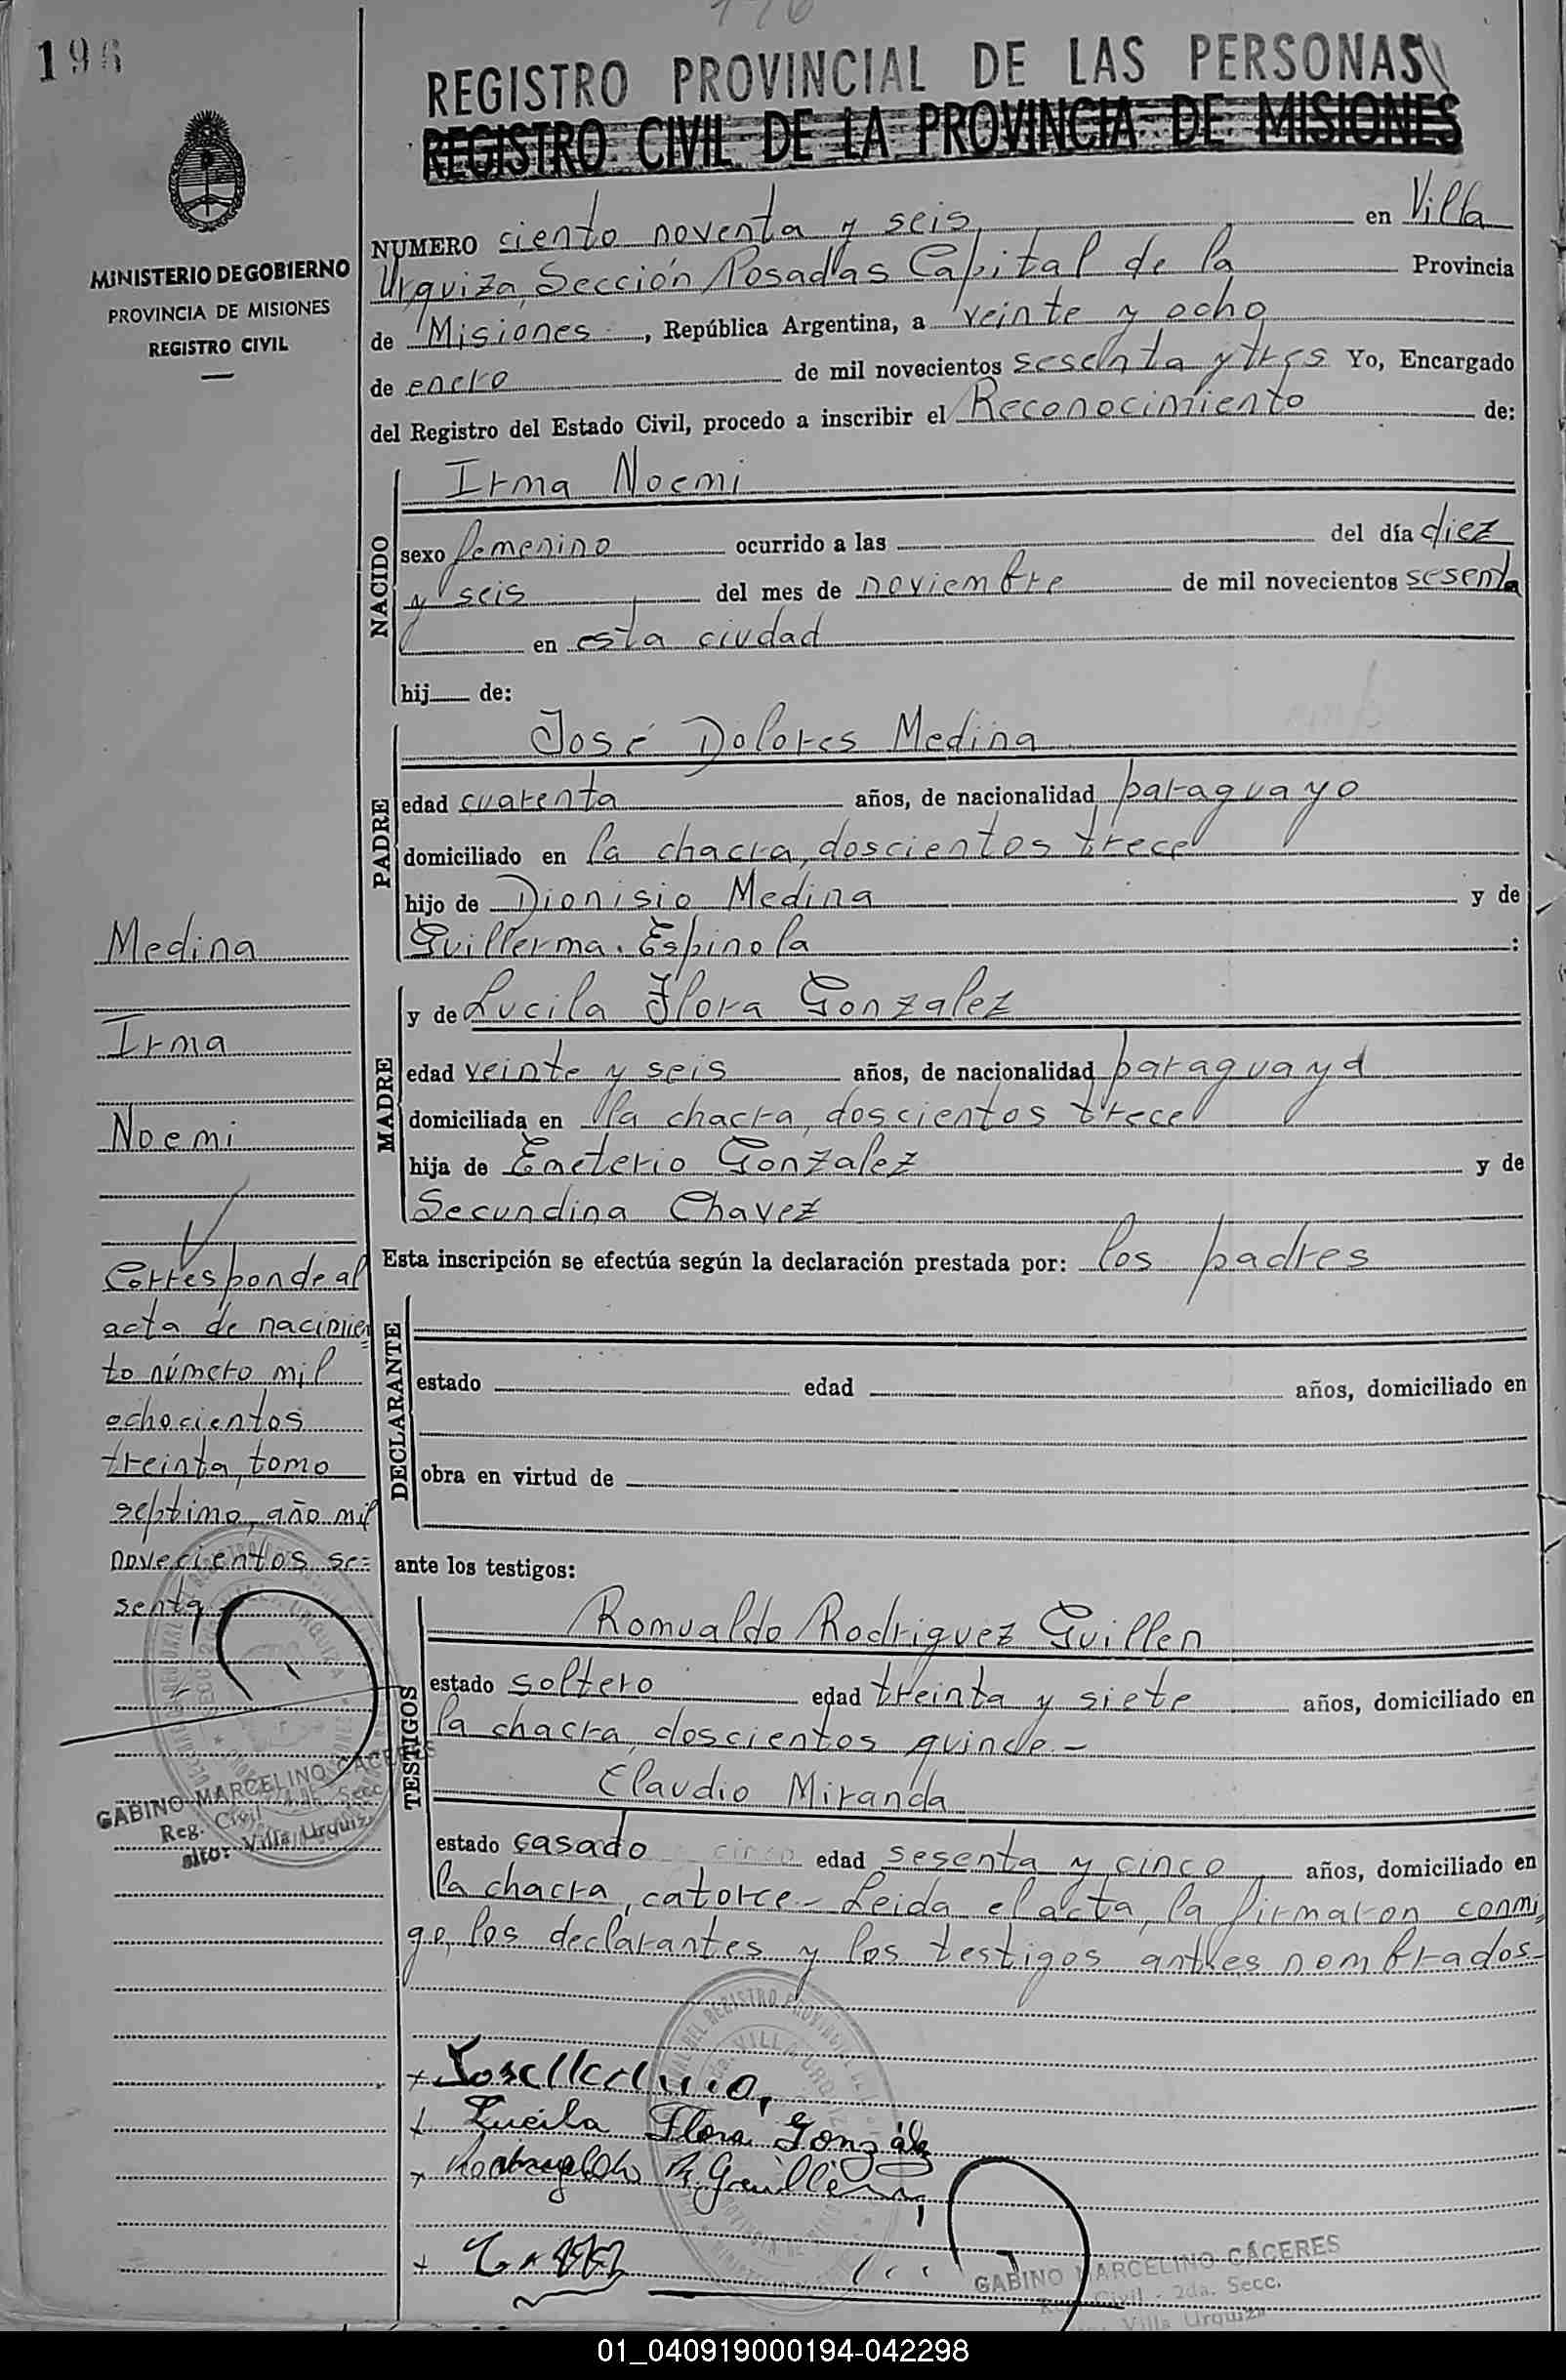 196
REGISTRO PROVINCIAL DE LAS PERSONAS
REGISTRO CIVIL DE LA PROVINCIA DE MISIONES
MINISTERIO DE GOBIERNO
PROVINCIA DE MISIONES
REGISTRO CIVIL
NUMERO ciento noventa y seis en Villa
Urquiza, Sección Posadas Capital de la Provincia
de Misiones, República Argentina, a veinte y ocho
de enero de mil novecientos sesenta y tres Yo, Encargado
del Registro del Estado Civil, procedo a inscribir el Reconocimiento de:
NACIDO
Irma Noemi
sexo femenino ocurrido a las del día diez
y seis del mes de noviembre de mil novecientos sesenta
en esta ciudad
hij de:
PADRE
José Dolores Medina
edad cuarenta años, de nacionalidad paraguayo
domiciliado en la chacra, doscientos trece
hijo de Dionisio Medina y de
Guillerma Espinola :
MADRE
y de Lucila Flora Gonzalez
edad veinte y seis años, de nacionalidad paraguaya
domiciliada en la chacra, doscientos trece
hija de Emeterio Gonzalez y de
Secundina Chavez
Esta inscripción se efectúa según la declaración prestada por: los padres
DECLARANTE
estado edad años, domiciliado en
obra en virtud de
ante los testigos:
TESTIGOS
Romualdo Rodriguez Guillen
estado soltero edad treinta y siete años, domiciliado en
la chacra, doscientos quince -
Claudio Miranda
estado casado edad sesenta y cinco años, domiciliado en
la chacra, catorce - Leida el acta, la firmaron conmi
go, los declarantes y los testigos antes nombrados -
Medina
Irma
Noemi
Corresponde al
acta de nacimien
to número mil
ochocientos
treinta, tomo
septimo, año mil
novecientos se=
senta
GABINO MARCELINO CACERES
Reg. Civil Secc.
Villa Urquiza
Lucila Flora González
R. Guillén
GABINO MARCELINO CÁCERES
Reg. Civil - 2da. Secc.
Villa Urquiza
01_040919000194-042298